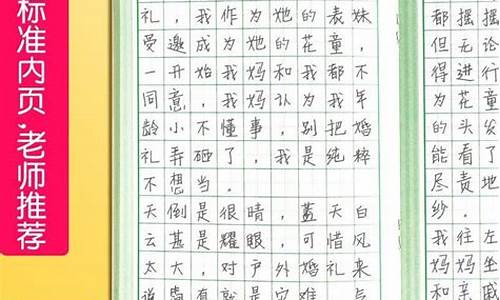 标准内页.老师推荐
礼，我作为她的表妹
受邀成为她的花童，
一开始我妈和我都不
同意，我妈认为我年
龄小不懂事，别把婚
礼弄砸了，我是纯粹
不想当。
天倒是很晴，蓝天白
云甚是耀眼，可惜风
太大，对户外婚礼来
就是灾难
都摇摇
但无论
得进行
为花童
的头发
能看了
尽责地
纱。
我往左
妈妈坐
和亲戚